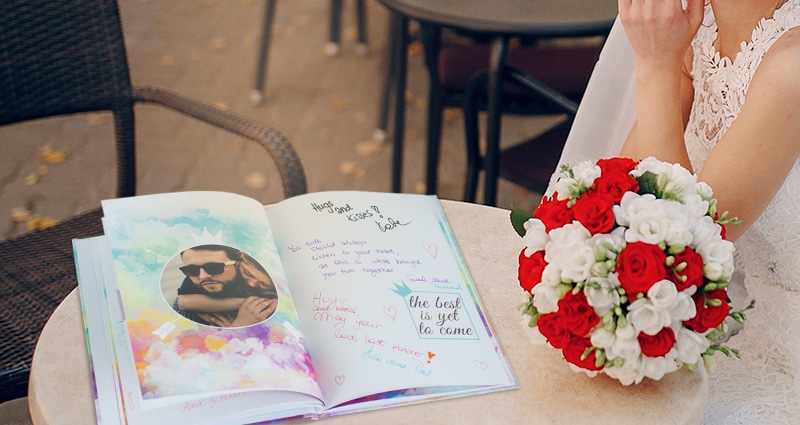 Hugs
and
kisses!
You both
should always
listen to your heart,
as this is what brought
you two together
Hugs
and kisses!
May your
love last forever
the best
is yet
to come